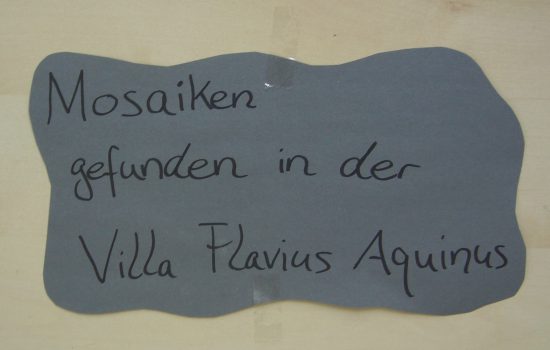 Mosaiken
gefunden in der
Villa Flavius Aquinus